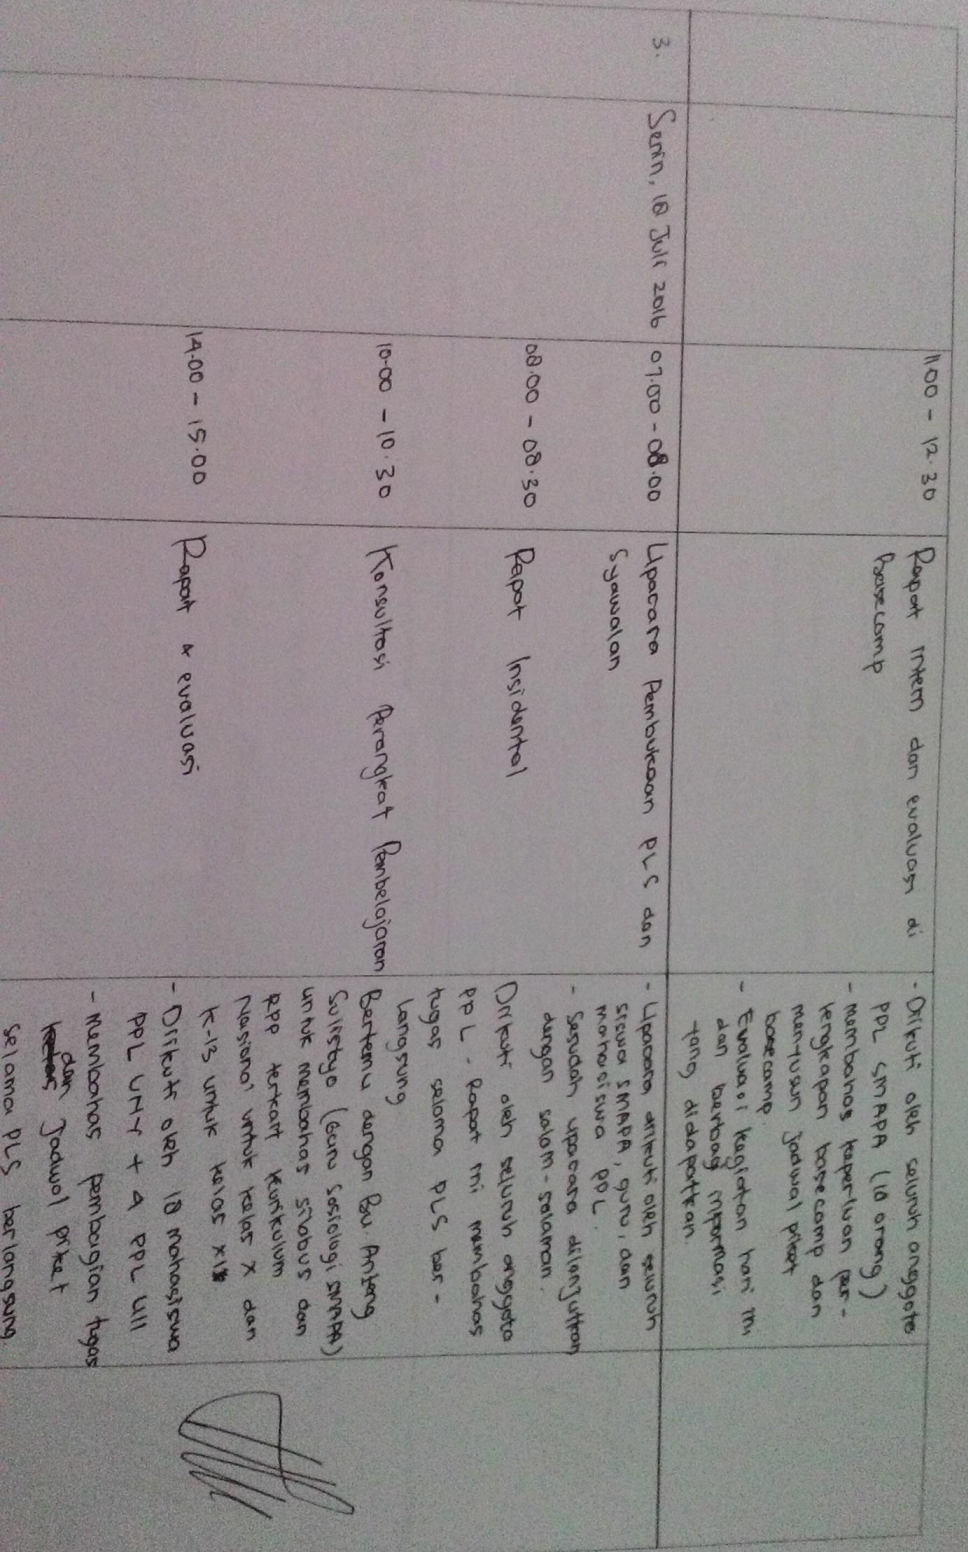 11.00 - 12.30
Rapat intern dan evaluasi di
basecamp
- Diikuti oleh seluruh anggota
PPL SMAPA (18 orang)
- Membahas keperluan per-
lengkapan basecamp dan
menyusun jadwal piket
basecamp.
- Evaluasi kegiatan hari ini
dan berbagi informasi
yang didapatkan.
3.
Senin, 18 Juli 2016
07.00 - 08.00
Upacara Pembukaan PLS dan
Syawalan
- Upacara diikuti oleh seluruh
siswa SMAPA, guru, dan
mahasiswa PPL.
- Sesudah upacara dilanjutkan
dengan salam-salaman.
08.00 - 08.30
Rapat Insidental
Diikuti oleh seluruh anggota
PPL. Rapat ini membahas
tugas selama PLS ber-
langsung
10.00 - 10.30
Konsultasi Perangkat Pembelajaran
Bertemu dengan Bu Anteng
Sulistyo (Guru Sosiologi SMAPA)
untuk membahas silabus dan
RPP terkait Kurikulum
Nasional untuk kelas X dan
K-13 untuk kelas XI
14.00 - 15.00
Rapat & evaluasi
- Diikuti oleh 18 mahasiswa
PPL UNY + 4 PPL UII
- Membahas pembagian tugas
dan Jadwal piket
selama PLS berlangsung.